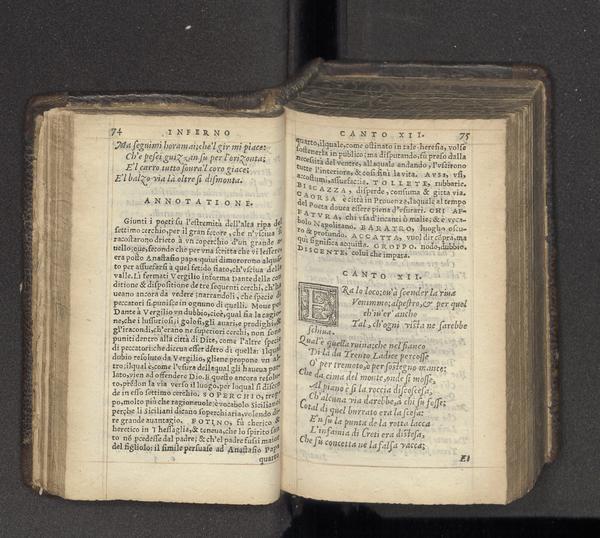 74 INFERNO
Ma seguimi horamai; che'l gir mi piace:
Ch'e pesci guizzan su per l'orizonta;
E'l carro tutto soura'l coro giace;
E'l balzo via là oltre si dismonta.
ANNOTATIONE.
Giunti i poeti su l'estremità dell'alta ripa del
settimo cerchio, per il gran fetore, che n'usciua si
racostarono drieto à vn coperchio d'un grande a
uello; oue, secondo che per vna scritta che vi lesse era
era posto Anastasio papa: quiui dimororono alquan
to per assuefarsi a quel fetido fiato, ch'usciua della
valle. Li fermati Vergilio informa Dante della con
ditione & dispositione de tre sequenti cerchi, ch'ha
ueano ancora da vedere narrandoli, che specie di
peccatori si punisce in ognuno di quelli. Moue poi
Dante à Vergilio vn dubbio, cioè, qual sia la cagio
ne, che i lussuriosi, i golosi, gli auari, e prodighi, &
gl'iracondi, ch'erano ne superiori cerchi, non sono
puniti dentro alla città di Dite, come l'altre specie
di peccatori: che diceua esser détro di quella: Il qual
dubio resoluto da Vergilio, gliene propone vn al
tro; il qual è, come l'usura della qual gli haueua par
lato, vien ad offendere Dio. Il questo ancora resolu
to, prédon la via verso il luogo, per loqual si discen
de in esso settimo cerchio. SOPERCHIO, trop
po, molto piu che ragioneuole: è vocabolo Siciliano
perche li Siciliani dicano soperchiaria, volendo di
re grande auantagio. FOTINO, fù cherico &
heretico in Thessaglia, & teneua, che lo spirito san
to nó pcedesse dal padre; & ch'el padre fussi maior
del figliolo: il simile persuase ad Anastasio Papa
quarto
CANTO XII. 75
quarto, il quale, come ostinato in tale heresia, volse
sostenerla in publico; ma disputando, fu preso dalla
necessità del ventre, alla quale andando, l'uscirono
tutte l'interiore, & cosi finì la vita. AVSI, vsi,
accostumi, assuefaccia. TOLLETE, rubbarie.
BISCAZZA, disperde, consuma & gitta via.
CAORSA è città in Prouenza, laquale al tempo
del Poeta douea essere piena d'usurari. CHI AF-
FATVRA, chi vsa d'incanti ò malie; & è voca-
bolo Napolitano. BARATRO, luogho oscu-
ro & profundo. ACCATTA, vuol dir cópra, ma
qui significa acquista. GROPPO. nodo, dubbio.
DISCENTE, colui che impara.
CANTO XII.
ERa lo loco; ou'à scender la riua
Venimmo; alpestro, & per quel
ch'iu'er' ancho
Tal, ch'ogni vista ne sarebbe
schiua.
Qual'e quella ruina; che nel fianco
Di là da Trento Ladice percosse
O' per tremoto, ò per sostegno manco;
Che da cima del monte, onde si mosse,
Al piano è si la roccia discoscesa,
Ch'alcuna via darebbe, à chi su fosse;
Cotal di quel burrato era la scesa:
E'n su la punta de la rotta lacca
L'infamia di Creti era distesa,
Che fu concetta ne la falsa vacca;
Et